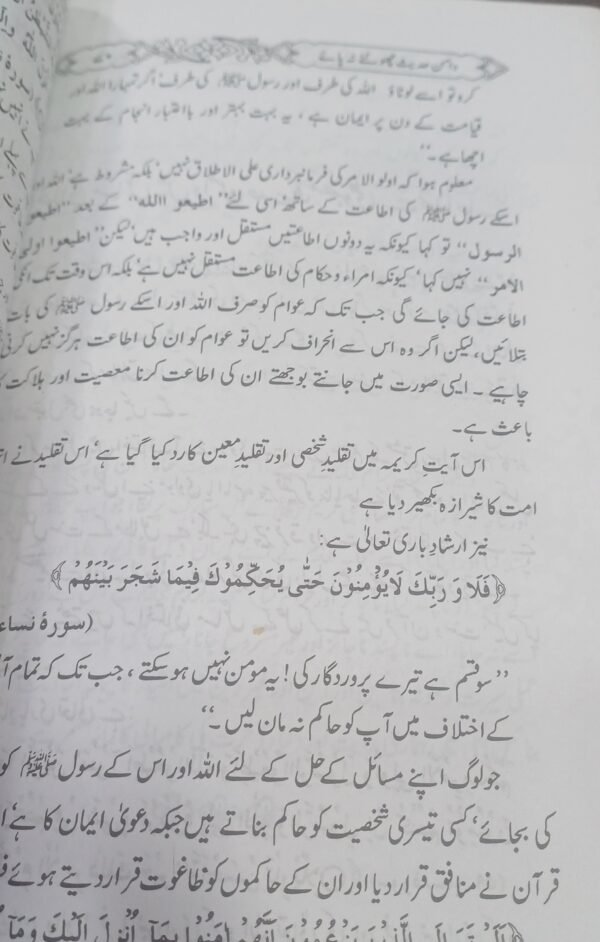 دامن حدیث چھوٹنے نہ پائے
کرو تو اسے لوٹاؤ اللہ کی طرف اور رسول ﷺ کی طرف' اگر تمہارا اللہ اور
قیامت کے دن پر ایمان ہے ، یہ بہت بہتر اور باعتبار انجام کے بہت
اچھا ہے ۔''
معلوم ہوا کہ اولو الامر کی فرمانبرداری علی الاطلاق نہیں' بلکہ مشروط ہے' اللہ اور
اسکے رسول ﷺ کی اطاعت کے ساتھ' اسی لئے'' اطیعو االله'' کے بعد ''اطیعو
الرسول'' تو کہا کیونکہ یہ دونوں اطاعتیں مستقل اور واجب ہیں' لیکن ''اطیعوا اولی
الامر'' نہیں کہا' کیونکہ امراء و حکام کی اطاعت مستقل نہیں ہے' بلکہ اس وقت تک انکی
اطاعت کی جائے گی جب تک کہ عوام کو صرف اللہ اور اسکے رسول ﷺ کی بات
بتلائیں، لیکن اگر وہ اس سے انحراف کریں تو عوام کو ان کی اطاعت ہرگز نہیں کرنی
چاہیے ۔ ایسی صورت میں جانتے بوجھتے ان کی اطاعت کرنا معصیت اور ہلاکت
باعث ہے۔
اس آیتِ کریمہ میں تقلیدِ شخصی اور تقلیدِ معین کا رد کیا گیا ہے' اس تقلید نے
امت کا شیرازہ بکھیر دیا ہے
نیز ارشادِ باری تعالیٰ ہے:
﴿فَلَا وَ رَبِّكَ لَا يُؤْمِنُوْنَ حَتّٰى يُحَكِّمُوْكَ فِيْمَا شَجَرَ بَيْنَهُمْ﴾
(سورۂ نساء
''سو قسم ہے تیرے پروردگار کی! یہ مومن نہیں ہو سکتے ، جب تک کہ تمام
کے اختلاف میں آپ کو حاکم نہ مان لیں ۔''
جو لوگ اپنے مسائل کے حل کے لئے اللہ اور اس کے رسول ﷺ کو
کی بجائے' کسی تیسری شخصیت کو حاکم بناتے ہیں جبکہ دعویٰ ایمان کا ہے'
قرآن نے منافق قرار دیا اور ان کے حاکموں کو طاغوت قرار دیتے ہوئے
﴿اَلَمْ تَرَ اِلَى الَّذِيْنَ يَزْعُمُوْنَ اَنَّهُمْ اٰمَنُوْا بِمَآ اُنْزِلَ اِلَيْكَ وَمَآ